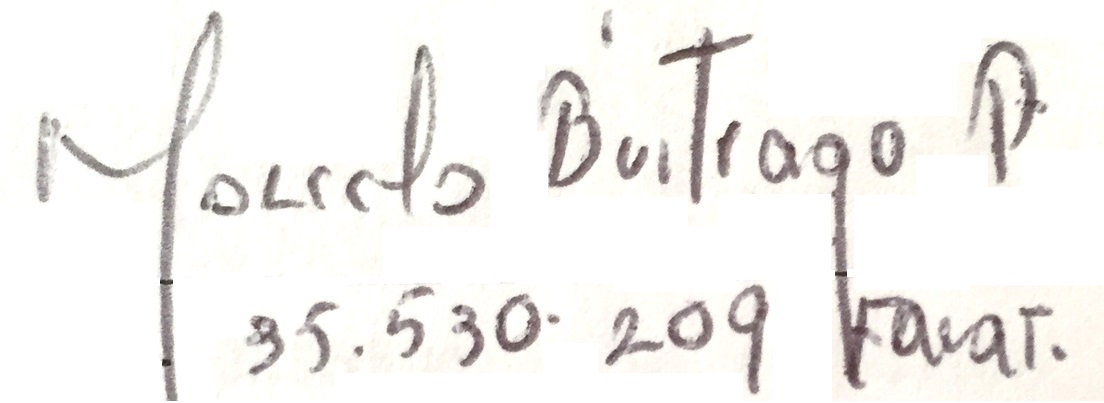 Marcela Buitrago P.
35.530.209 Facat.